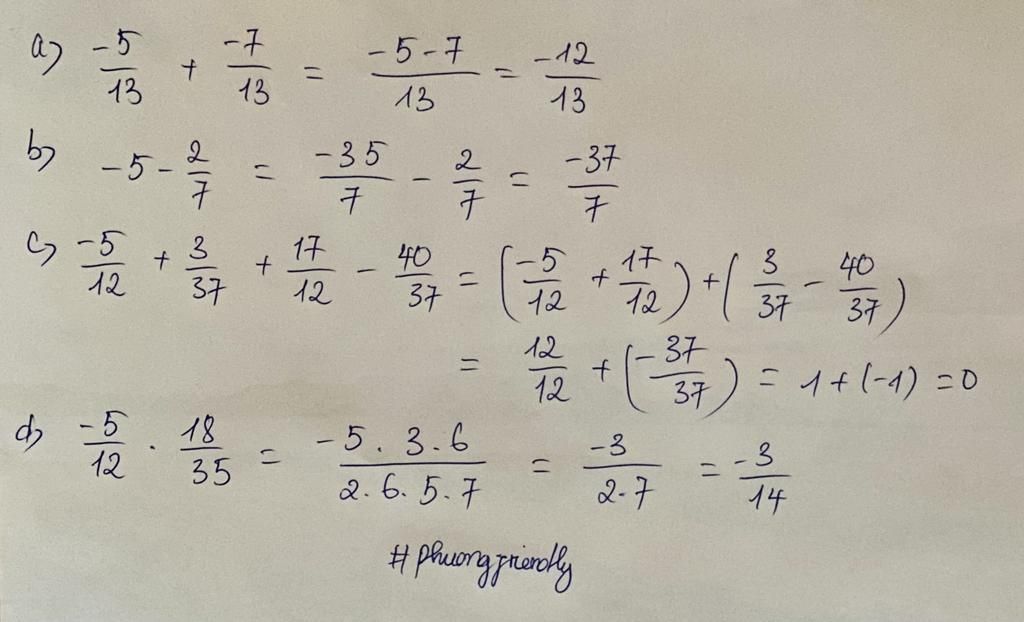 a) -5/13 + -7/13 = -5-7/13 = -12/13
b) -5 - 2/7 = -35/7 - 2/7 = -37/7
c) -5/12 + 3/37 + 17/12 - 40/37 = (-5/12 + 17/12) + (3/37 - 40/37)
= 12/12 + (-37/37) = 1 + (-1) = 0
d) -5/12 . 18/35 = -5.3.6/2.6.5.7 = -3/2.7 = -3/14
#phuongfriendly